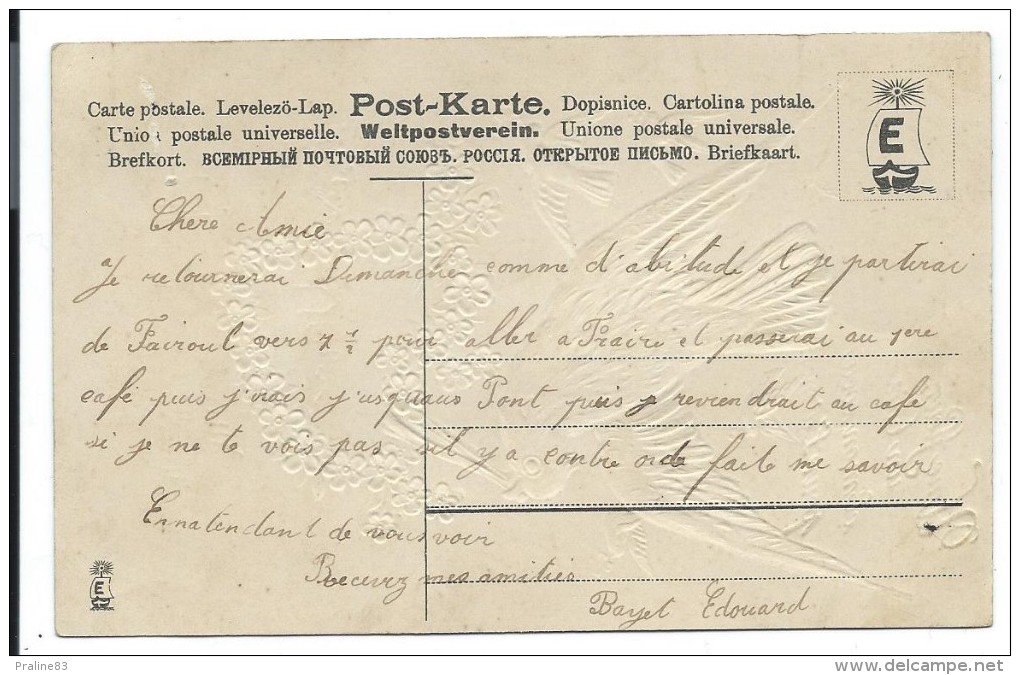 Carte postale. Levelezö-Lap. Post-Karte. Dopisnice. Cartolina postale.
Union postale universelle. Weltpostverein. Unione postale universale.
Brefkort. ВСЕМІРНЫЙ ПОЧТОВЫЙ СОЮЗЪ. РОССІЯ. ОТКРЫТОЕ ПИСЬМО. Briefkaart.
E
Chere Amie
Je retournerai Dimanche comme d'abitude et je partirai
de Fairoul vers 7 1/2 pour aller a Fraire et passerai au 1ere
café puis j'irais j'usquaus Pont puis je reviendrait au café
si je ne te vois pas sil y a contre orde fait me savoir
Ennatendant de vous voir
Recevez mes amitiés
Bayet Edouard
E
Praline83
www.delcampe.net